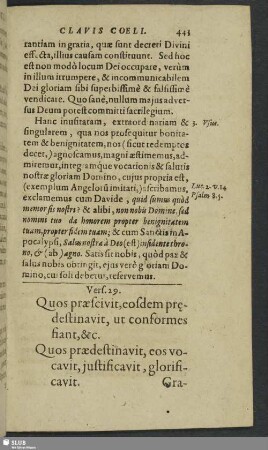 CLAVIS COELI. 441
rantiam in gratia, quæ sunt decreti Divini
effecta, illius causam constituunt. Sed hoc
est non modò locum Dei occupare, verùm
in illum irrumpere, & incommunicabilem
Dei gloriam sibi superbissimè & falsissimè
vendicare. Quo sanè, nullum majus adver-
sus Deum potest committi sacrilegium.
Hanc inusitatam, extraordinariam & 3. Usus.
singularem, qua nos prosequitur bonitatem
& benignitatem, nos (sicut redemptos
decet,) agnoscamus, magni æstimemus, ad-
miremur, integramque vocationis & salutis
nostræ gloriam Domino, cujus propria est,
(exemplum Angelorū imitati,) ascribamus, Luc. 2. v. 14
exclamemus cum Davide, quid sumus quòd Psalm 8. 5.
memor sis nostri? & alibi, non nobis Domine, sed
nomini tuo da honorem propter benignitatem
tuam, propter fidem tuam; & cum Sanctis in A-
pocalypsi, Salus nostra à Deo (est) insidente thro-
no, & (ab) agno. Satis sit nobis, quòd pax &
salus nobis obtingit, ejus verò gloriam Do-
mino, cui soli debetur, reservemus.
Vers. 29.
Quos præscivit, eosdem prę-
destinavit, ut conformes
fiant, &c.
Quos prædestinavit, eos vo-
cavit, justificavit, glorifi-
cavit. Gra-
SLUB